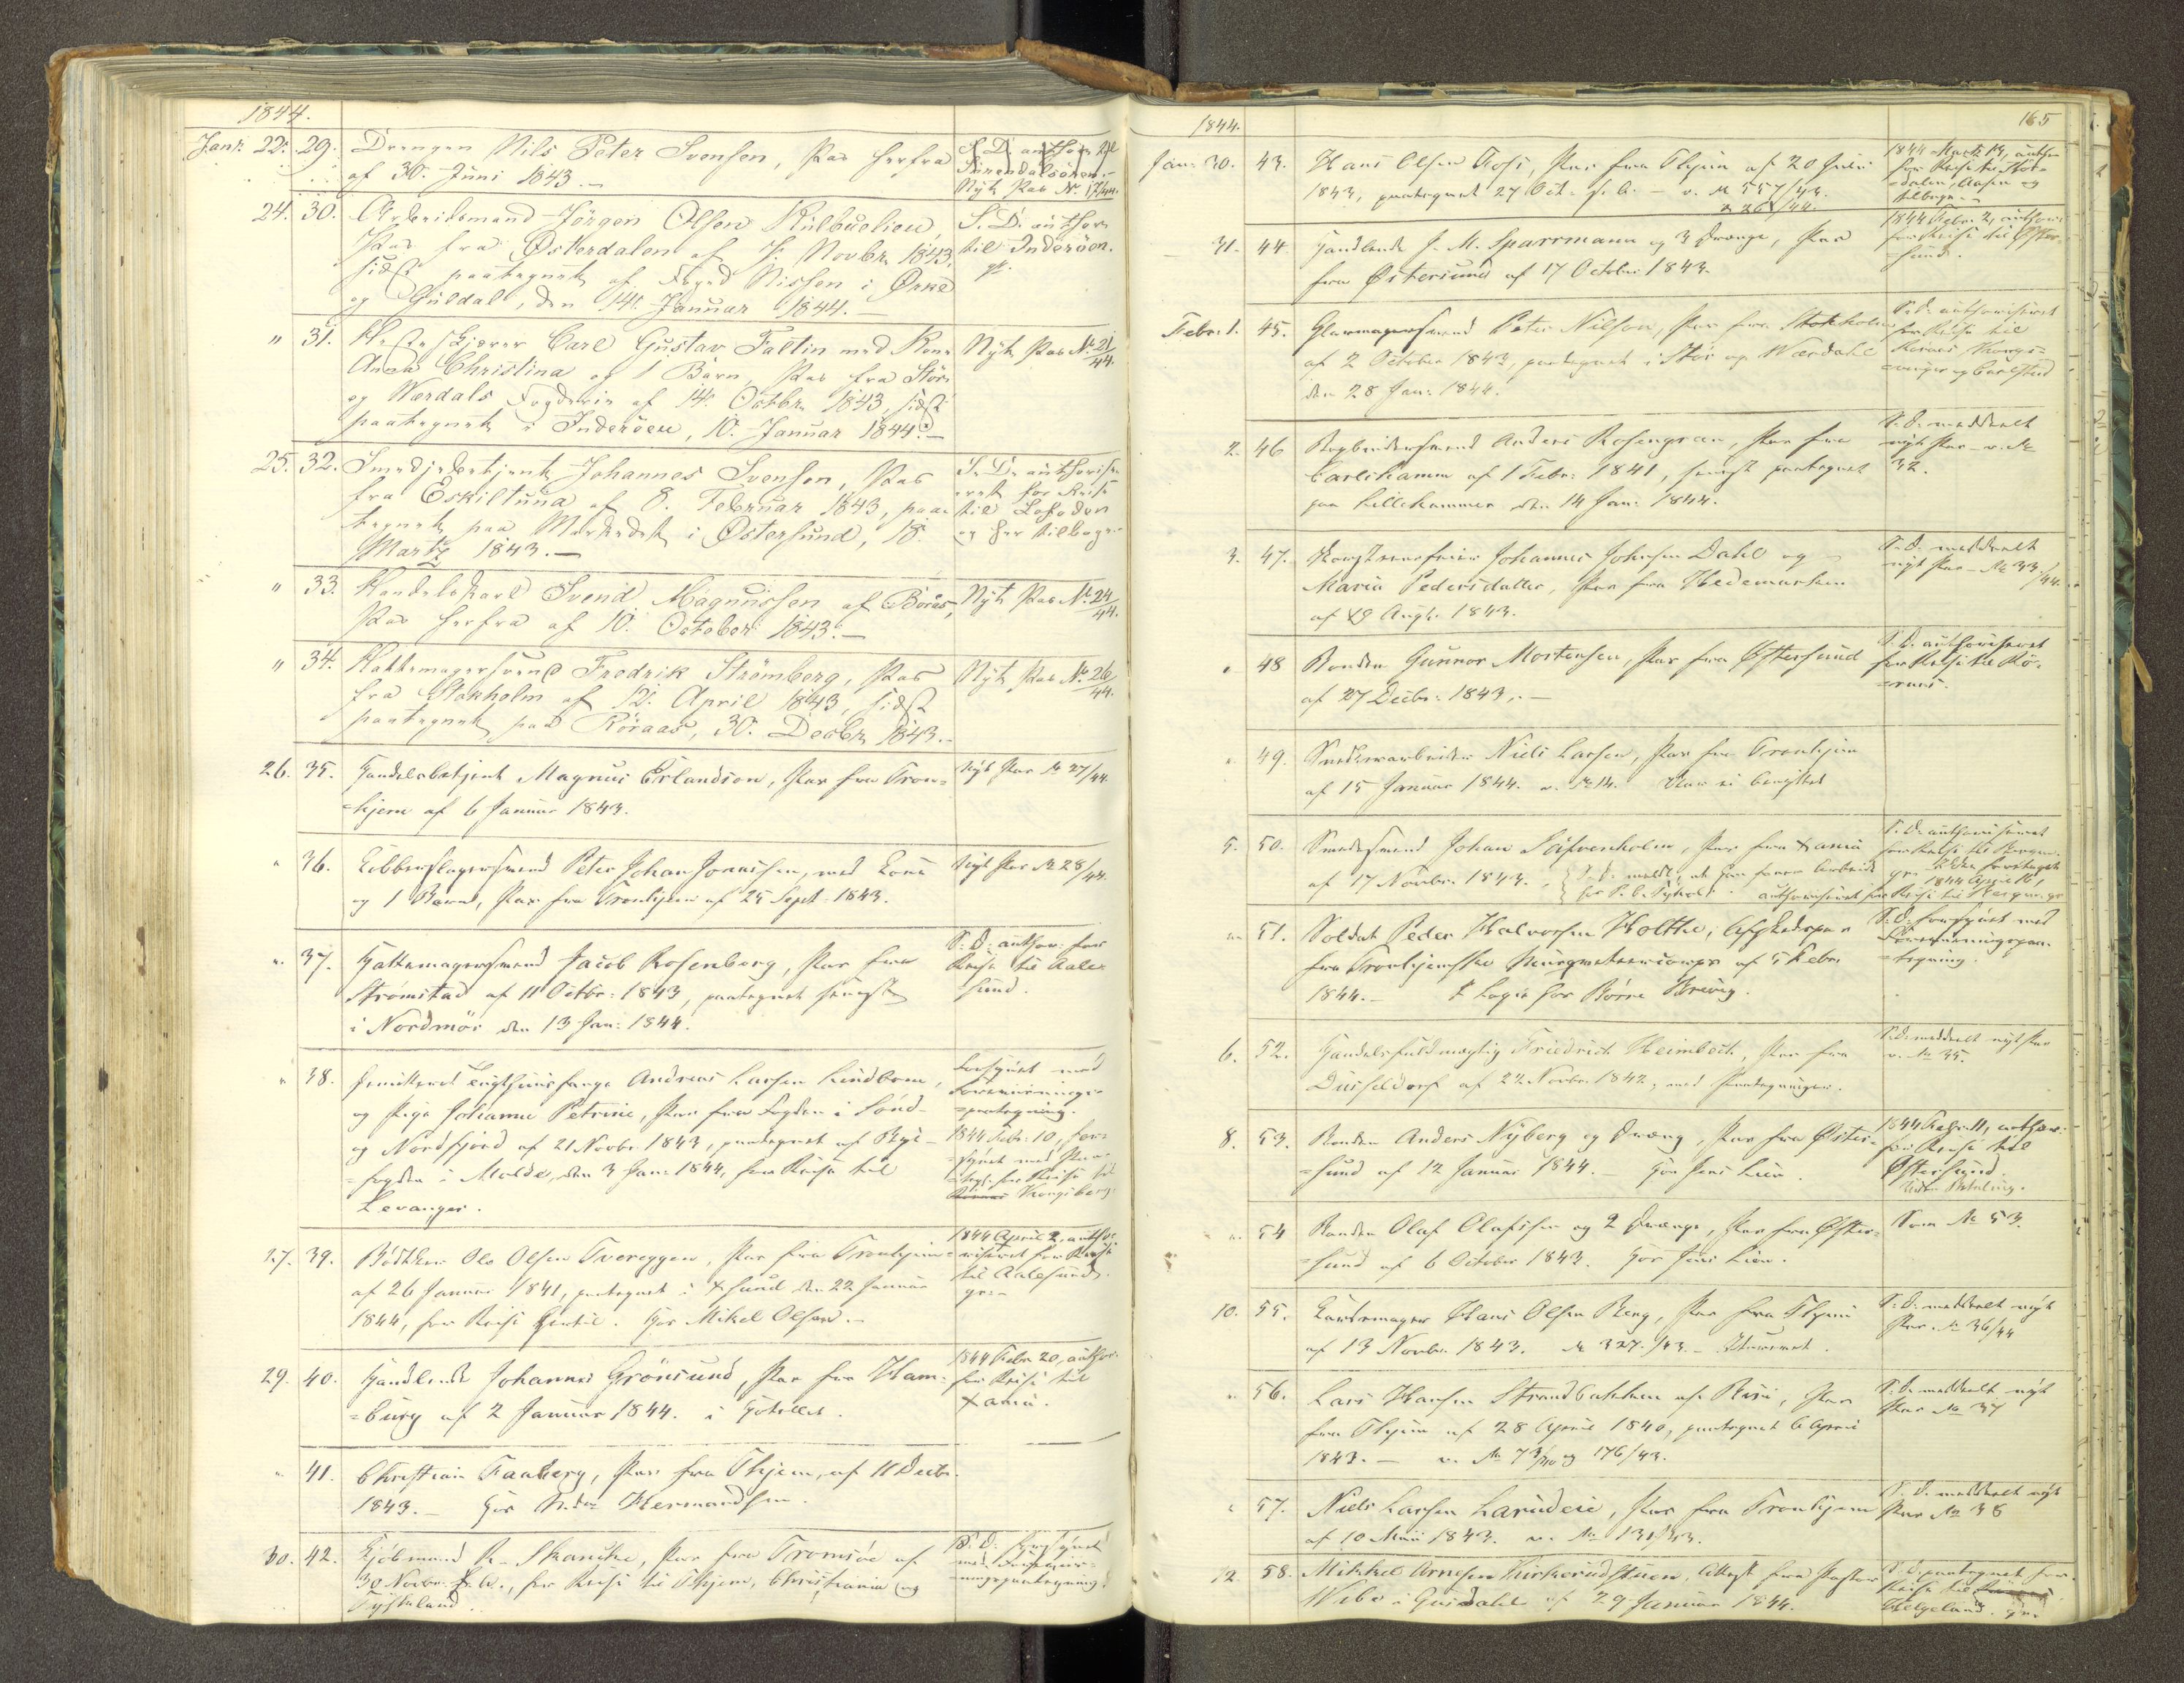 1844.
Janr. 22. 29. Drengen Nils Peter Svensen, Pas herfra
af 30. Juni 1843.
S. D. author. til
Surendalsören.
Nyt Pas No. 17/44.
24. 30. Arbeidsmand Jörgen Olsen Kulbuelien,
Pas fra Østerdalen af 7. Novbr. 1843,
sidst paategnet af Foged Nissen i Orke
og Guldal, den 14. Januar 1844.
S. D. author.
til Inderöen.
" 31. Carl Gustav Faltin med Kone
Anna Christina og 1 Barn, Pas fra Stör
og Værdals Fogderie af 14. Octbr. 1843, sidst
paategnet i Inderöen, 10. Januar 1844.
Nyt Pas No. 21/44.
25. 32. Smedjebetjent Johannes Svenson, Pas
fra Eskiltuna af 8. Februar 1843, paa-
tegnet paa Markedet i Østersund, 18.
Martz 1843.
S. D. authorise-
ret for Reise
til Lofoden
og her tilbage
" 33. Handelskarl Svend Magnussen af Borås,
Pas herfra af 10. October 1843.
Nyt Pas No. 24/44.
" 34. Hattemagersvend Fredrik Strömberg, Pas
fra Stokholm af 12. April 1843, sidst
paategnet paa Röraas, 30. Decbr. 1843.
Nyt Pas No. 26/44.
26. 35. Handelsbetjent Magnus Erlandson, Pas fra Tron-
hjem af 6 Januar 1843.
Nyt Pas No 27/44.
" 36. Kobberslagersvend Peter Johan Jonassen, med Kone
og 1 Barn, Pas fra Tronhjem af 25 Sept. 1843.
Nyt Pas No 28/44.
" 37. Hattemagersvend Jacob Rosenberg, Pas fra
Strömstad af 11 Octbr. 1843, paategnet senest
i Nordmör den 13 Jan: 1844.
S. D. author. for
Reise til Aale-
sund.
" 38. Tugthuusfange Andreas Larsen Lindbom,
og Pige Johanne Petrine, Pas fra Fogden i Sönd-
og Nordfjord af 21 Novbr. 1843, paategnet af By-
fogden i Molde, den 3 Jan: 1844, for Reise til
Levanger.
Forsynet med
Foreviisnings-
paategning.
1844 Febr. 10, for-
synet med Paa-
tegn. for Reise til
Kongsberg.
27. 39. Bödker Ole Olsen Tvereggen, Pas fra Tronhjem
af 26 Januar 1841, paategnet i Xsund den 22 Januar
1844, for Reise hertil. Hos Mikel Olsen.
1844 April 2, autho-
riseret for Reise
til Aalesund.
29. 40. Handlende Johannes Grönsund, Pas fra Ham-
burg af 2 Januar 1844. i Hotellet.
1844 Febr 20, author.
for Reise til
Xania.
" 41. Christian Faaberg, Pas fra Thjem, af 11 Decbr.
1843. Hos Hermandsen.
30. 42. Kjöbmand R. Skancke, Pas fra Tromsöe af
30 Novbr. f. A., for Reise til Thjem, Christiania og
Tydskland.
S. D. forsynet
med Foreviis-
ningspaategning.
1844.
165
Jan: 30. 43. Hans Olsen Foss, Pas fra Thjem af 20 Juni
1843, paategnet 27 Oct. f. A. - v. No 557/43.
& 26/44.
1844 Marts 13, author.
for Reise til Stör-
dalen, Aasen og
tilbage.
- 31. 44. Handlende J. M. Sparrmann og 3 Drenge, Pas
fra Østersund af 17 October 1843.
1844 Febr. 2, author.
for Reise til Öster-
sund.
Febr. 1. 45. Glarmagersvend Peter Nilson, Pas fra Stokholm
af 2 October 1843, paategnet i Stör og Værdahl
den 28 Jan: 1844.
S. D. authoriseret
for Reise til
Röraas, Kongs-
vinger og Carlstad
2. 46 Bogbindersvend Anders Rosengren, Pas fra
Carlshamn af 1 Febr. 1841, senest paategnet
paa Lillehammer den 14 Jan: 1844.
S. D. meddeelt
nyt Pas v. No
32.
3. 47. Johannes Johnsen Dahl og
Maria Pedersdatter, Pas fra Hedemarken
af 19 Aug. 1843.
S. D. meddeelt
nyt Pas No 33/44.
" 48 Bonden Gunnar Mortensen, Pas fra Østersund
af 27 Decbr. 1843.
S. D. authoriseret
for Reise til Rö-
raas.
" 49. Snedkerarbeider Niels Larsen, Pas fra Tronhjem
af 15 Januar 1844. v. No 14. Pas ei benyttet
5. 50. Smedesvend Johan Säfvenholm, Pas fra Xania
af 17 Novbr. 1843.
S. D. meldt, at han faaer Arbeide
S. D. authoriseret
for Reise til Bergen.
1844 April 16,
authoriseret for Reise til Bergen
" 51. Soldat Peder Halvorsen Holthe, Afskedspas
fra Tronhjemske Musqueteercorps af 5 Febr.
1844. - I Logie hos Börre Brevig.
S. D. forsynet med
Foreviisningspaa-
tegning.
6. 52. Handelsfuldmægtig Friedrich Heimbeck, Pas fra
Düsseldorf af 22 Novbr. 1842, med Paategninger.
S. D. meddeelt nyt Pas
v. No 35.
8. 53. Bonden Anders Nyberg og Dreng, Pas fra Øster-
sund af 12 Januar 1844. - Hos Jens Lien.
1844 Febr. 11, author.
for Reise til
Østersund.
uden Betaling.
" 54 Bonden Olaf Olafsen og 2 Drenge, Pas fra Øster-
sund af 6 October 1843. Hos Jens Lien.
Som No 53.
10. 55. Hans Olsen Berg, Pas fra Thjem
af 13 Novbr. 1843. No 327/43.
S. D. meddeelt nyt
Pas No 36/44
" 56. Lars Hansen Strandbakken af Risö, Pas
fra Thjem af 28 April 1840, paategnet 6 April
1843. - v. No 73/40 og 176/43.
S. D. meddeelt nyt
Pas No 37
" 57. Niels Larsen Larudeie, Pas fra Tronhjem
af 10 Mai 1843. v. No 131/43.
S. D. meddeelt nyt
Pas No 38
12. 58. Mikkel Arnesen Kirkerudstuen, Attest fra Pastor
Wibe i Gusdahl af 29 Januar 1844.
S. D. paategnet for
Reise til
Helgeland.